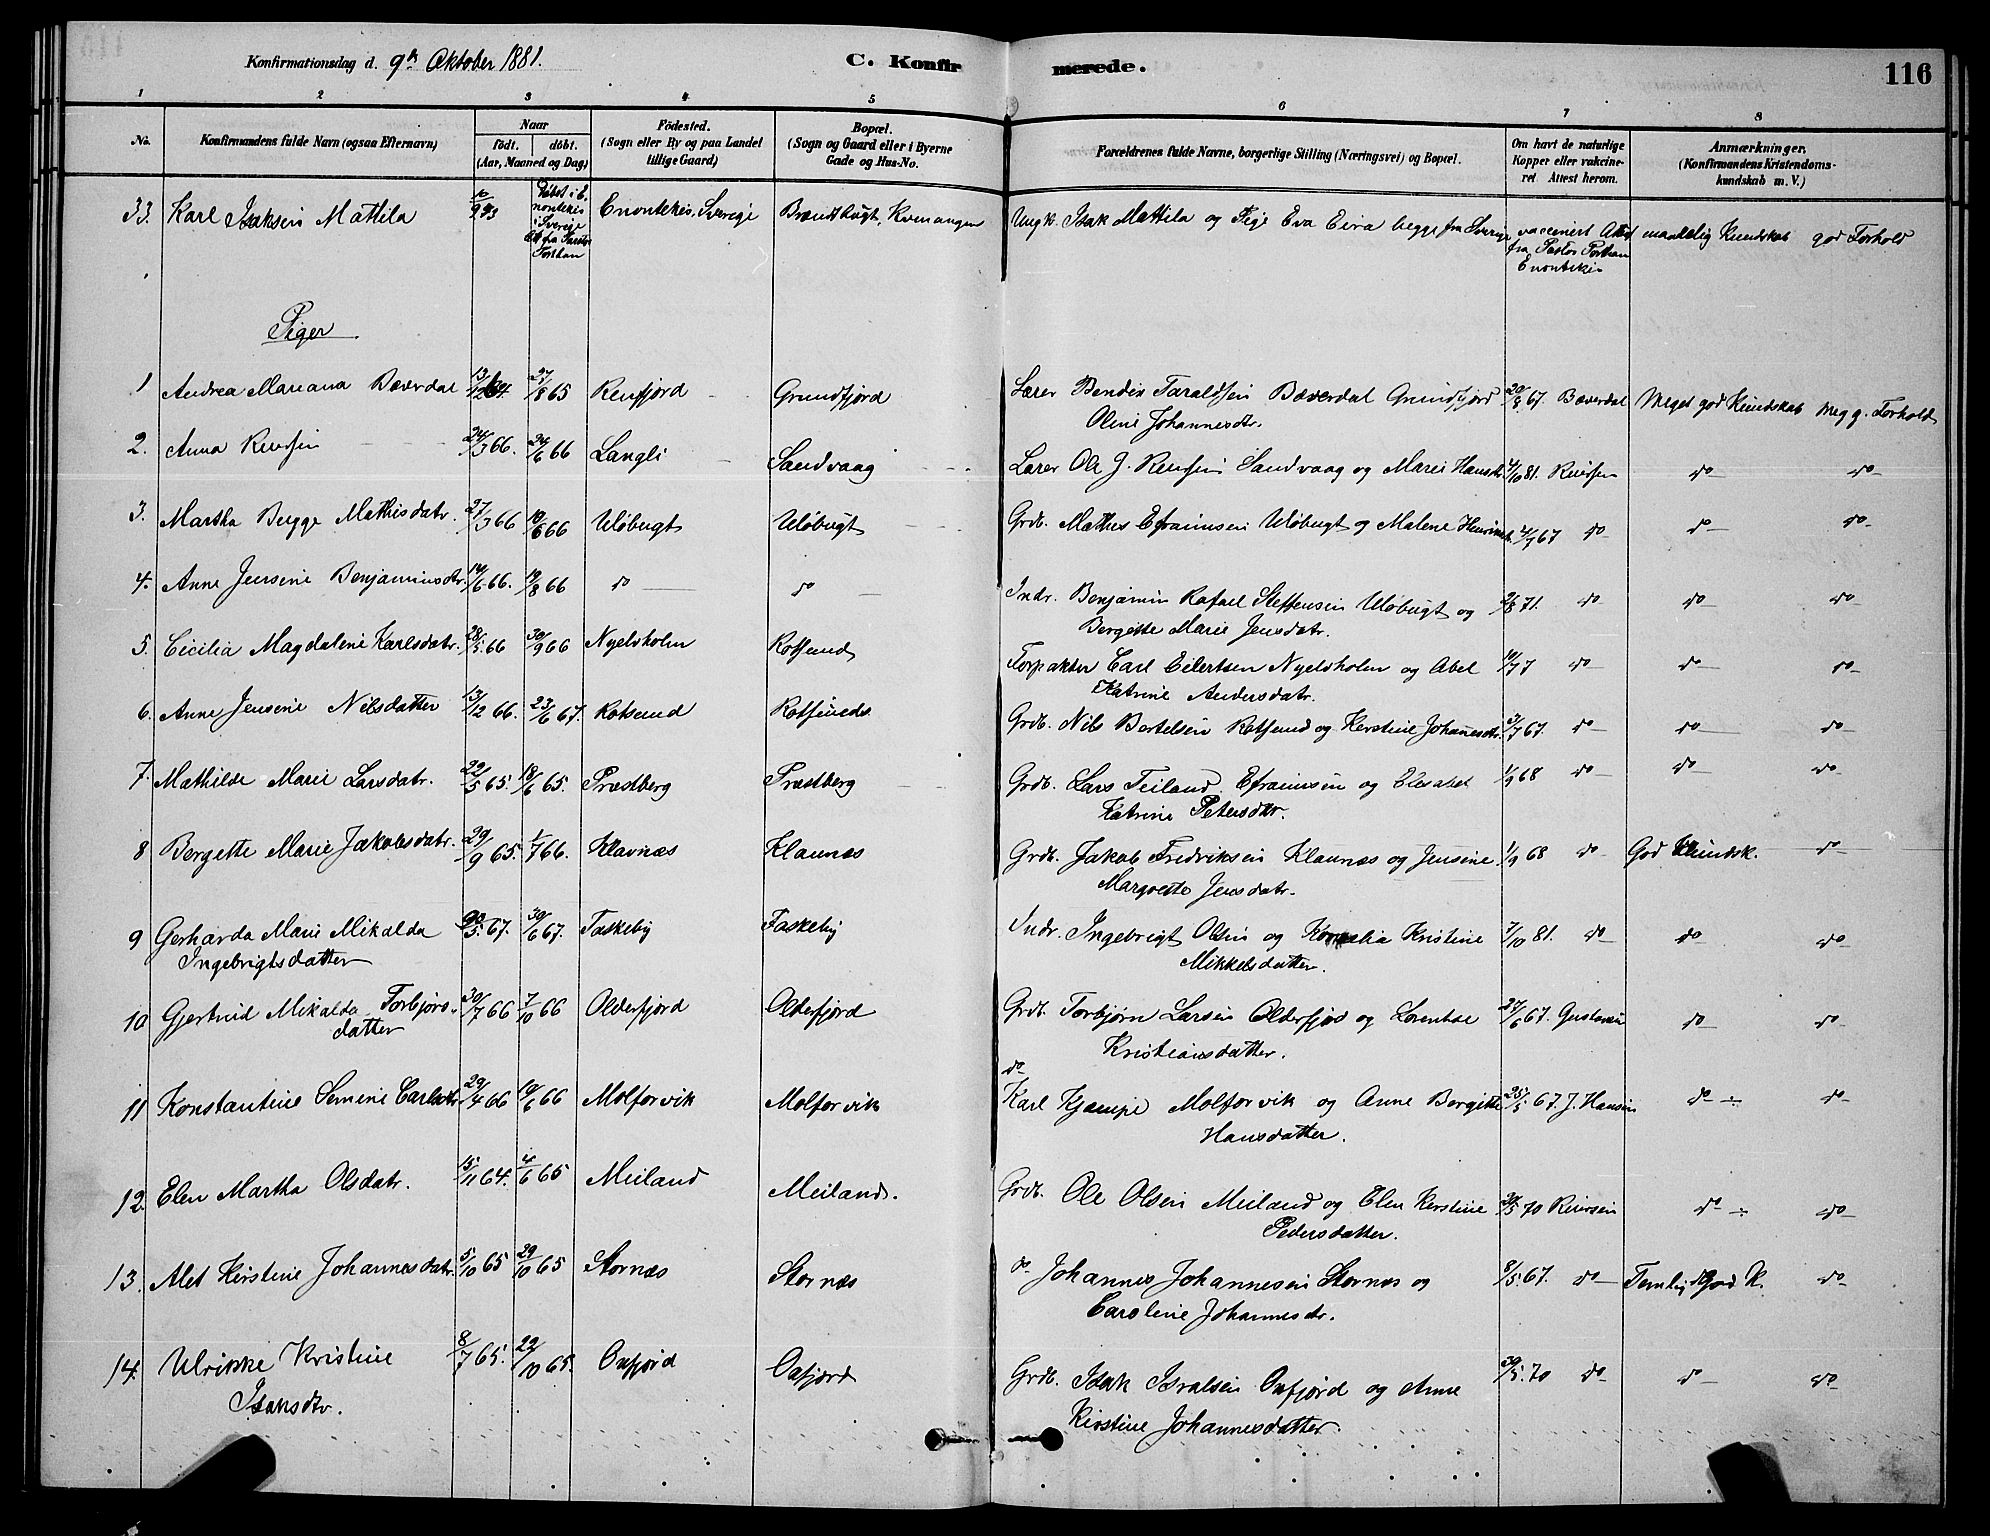 Konfirmationsdag d. 9de Oktober 1881.
C. Konfirmerede.
116
1 2 3 4 5 6 7 8
No.
Konfirmandens fulde Navn (ogsaa Efternavn)
Naar
födt. döbt.
(Aar, Maaned og Dag)
Födested.
(Sogn eller By og paa Landet
tillige Gaard)
Bopæl.
(Sogn og Gaard eller i Byerne
Gade og Hus-No.
Forældrenes fulde Navne, borgerlige Stilling (Næringsvei) og Bopæl.
Om havt de naturlige
Kopper eller vakcine-
ret. Attest herom.
Anmærkninger.
(Konfirmandens Kristendoms-
kundskab m. V.)
33. Karl Isaksen Mattila
Döbt i E-
nontekis
i Sverige
Att fra Pastor
Enontekis, Sverige
Kvenangen
Ungk. Isak Mattila og Pige Eva Eira begge fra Sverige
vaccinert Attest
fra Pastor
Enontekis
maadelig Kundskab god Forhold
Piger
1 Andrea Mariana Bæverdal 27/8 65 Renfjord Grundfjord
Lærer Bendix Taraldsen Bæverdal Grundfjord
Oline Johannesdtr.
20/8 67. Bæverdal Meget god Kundskab meg g. Forhold
2. Anna 24/3 66. 24/6 66 Langli Sandvaag
Lærer Ole J. Sandvaag og Marie Hansdtr 4/10 81. do do
3. Martha Bugge Mathisdatr. 27/3 66 10/6 66 Uløbugt Uløbugt
Grdb. Mathis Efraimsen Uløbugt og Malene 4/7 67 do do do
4. Anne Jensine Benjaminsdtr. 14/6 66. 19/8 66 do do
Indr. Benjamin Rafael Steffensen Uløbugt og
Bergette Marie Jensdatr.
2/8 71. do do do
5. Cicilia Magdalene Karlsdatr. 28/5 66 30/9 66 Nyelvholm Rotsund
Forpakter Carl Eilertsen Nyelvholm og Abel
Katrine Andersdatr.
do do do
6. Anne Jensine Nilsdatter 13/12 66. 23/6 67. Rotsund Rotsund
Grdb. Nils Bertelsen Rotsund og Kerstine Johanesdtr. 3/7 67. do do do
7. Mathilde Marie Larsdatr. 22/5 65. 18/6 65. Præstberg Præstberg
Grdb. Lars Teiland Efraimsen og Elisabet
Katrine Petersdtr.
1/9 68 do do do
8 Bergette Marie Jakobsdatr. 29/9 65. 1/7 66. Klavnæs Klavnæs
Grdb. Jakob Fredriksen Klavnæs og Jensine
Margrete Jensdatr.
1/9 68 do God Kundsk. do
9 Gerharda Marie Mikalda
Ingebrigtsdatter
30/6 67. Taskeby Taskeby
Indr. Ingebrigt Olsen og Kornelia Kristine
Mikkelsdatter.
7/10 81. do do do
10 Gjertrud Mikalda Torbjørs-
datter
30/7 66 7/10 66 Olderfjord Olderfjord
Grdb. Torbjørn Larsen Olderfjord og Lorentse
Kristiansdatter.
27/6 67. Gustavsen do do
11 Konstantine Semine Carlsdtr 29/4 66 10/6 66 Molforvik Molforvik
do
Karl Kjempe Molforvik og Anne Bergitte
Hansdatter.
25/5 67. J. Hansen do ÷ do
12. Elen Martha Olsdatr. 15/11 64. 4/6 65 Meiland Meiland.
Grdb. Ole Olsen Meiland og Elen Kerstine
Pedersdatter.
70 do ÷ do
13. Alet Kirstine Johannesdatr. 5/10 65 29/10 65 Stornæs Stornæs
do Johannes Johannesen Stornæs og
Caroline Johannesdtr.
8/5 67. do Temlig God K. do
14. Ulrikke Kristine
Isaksdtr.
8/7 65. 22/10 65. Oxfjord Oxfjord
Grdb. Isak Isralsen Oxfjord og Anne
Kirstine Johannesdatter.
30/5 70 do do do